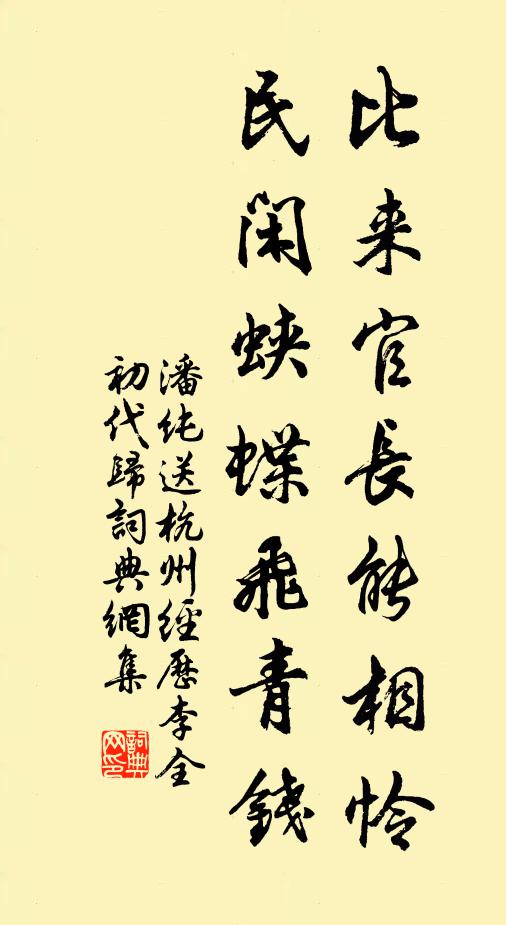 比来官長能相怜
民閑蛺蝶飛青錢
潘純送杭州經歷李全
初代歸詞典網集
詞典
网印